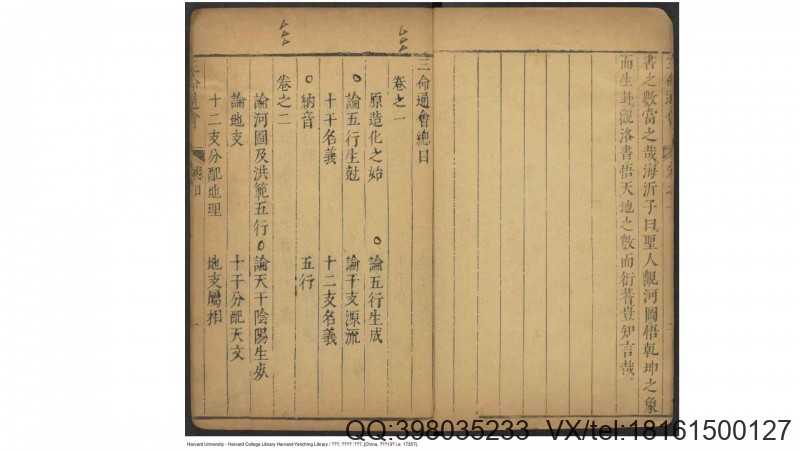 書之數當之哉海沂子曰聖人觀河圖悟乾坤之象
而生卦觀洛書悟天地之數而衍蓍豈知言哉
三命通會總目
卷之一
原造化之始 ○論五行生成
○論五行生尅 論干支源流
十干名義 十二支名義
○納音 五行
卷之二
論河圖及洪範五行 ○論天干陰陽生死
論地支 十干分配天文
十二支分配地理 地支屬相
QQ:398035233 VX/tel:18161500127
Harvard University - Harvard College Library Harvard-Yenching Library / ???, ???? :???, [China, ???13? i.e. 1735?].